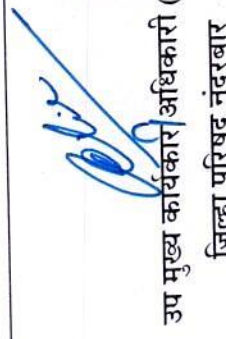 उप मुख्य कार्यकारी अधिकारी (
जिल्हा परिषद नंदुरबार